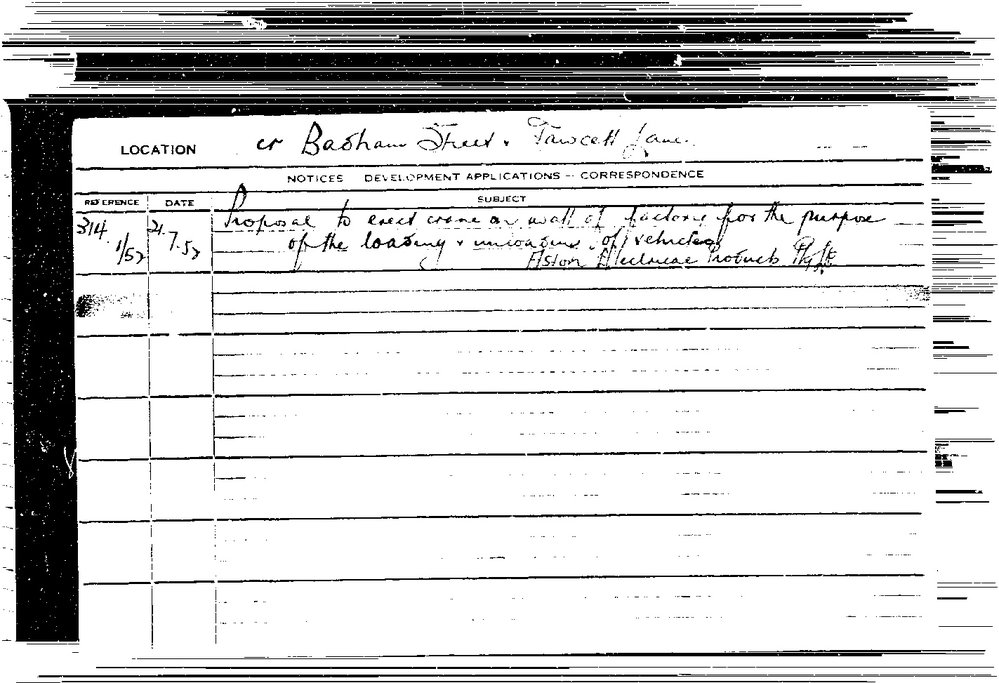 LOCATION cr Badham Street & Fawcett Lane.
NOTICES DEVELOPMENT APPLICATIONS - CORRESPONDENCE
REFERENCE DATE SUBJECT
314 21.7.57 Proposal to erect crane on wall of factory for the purpose
1/57 of the loading & unloading of vehicles
Aston Electrical Products Pty Ltd